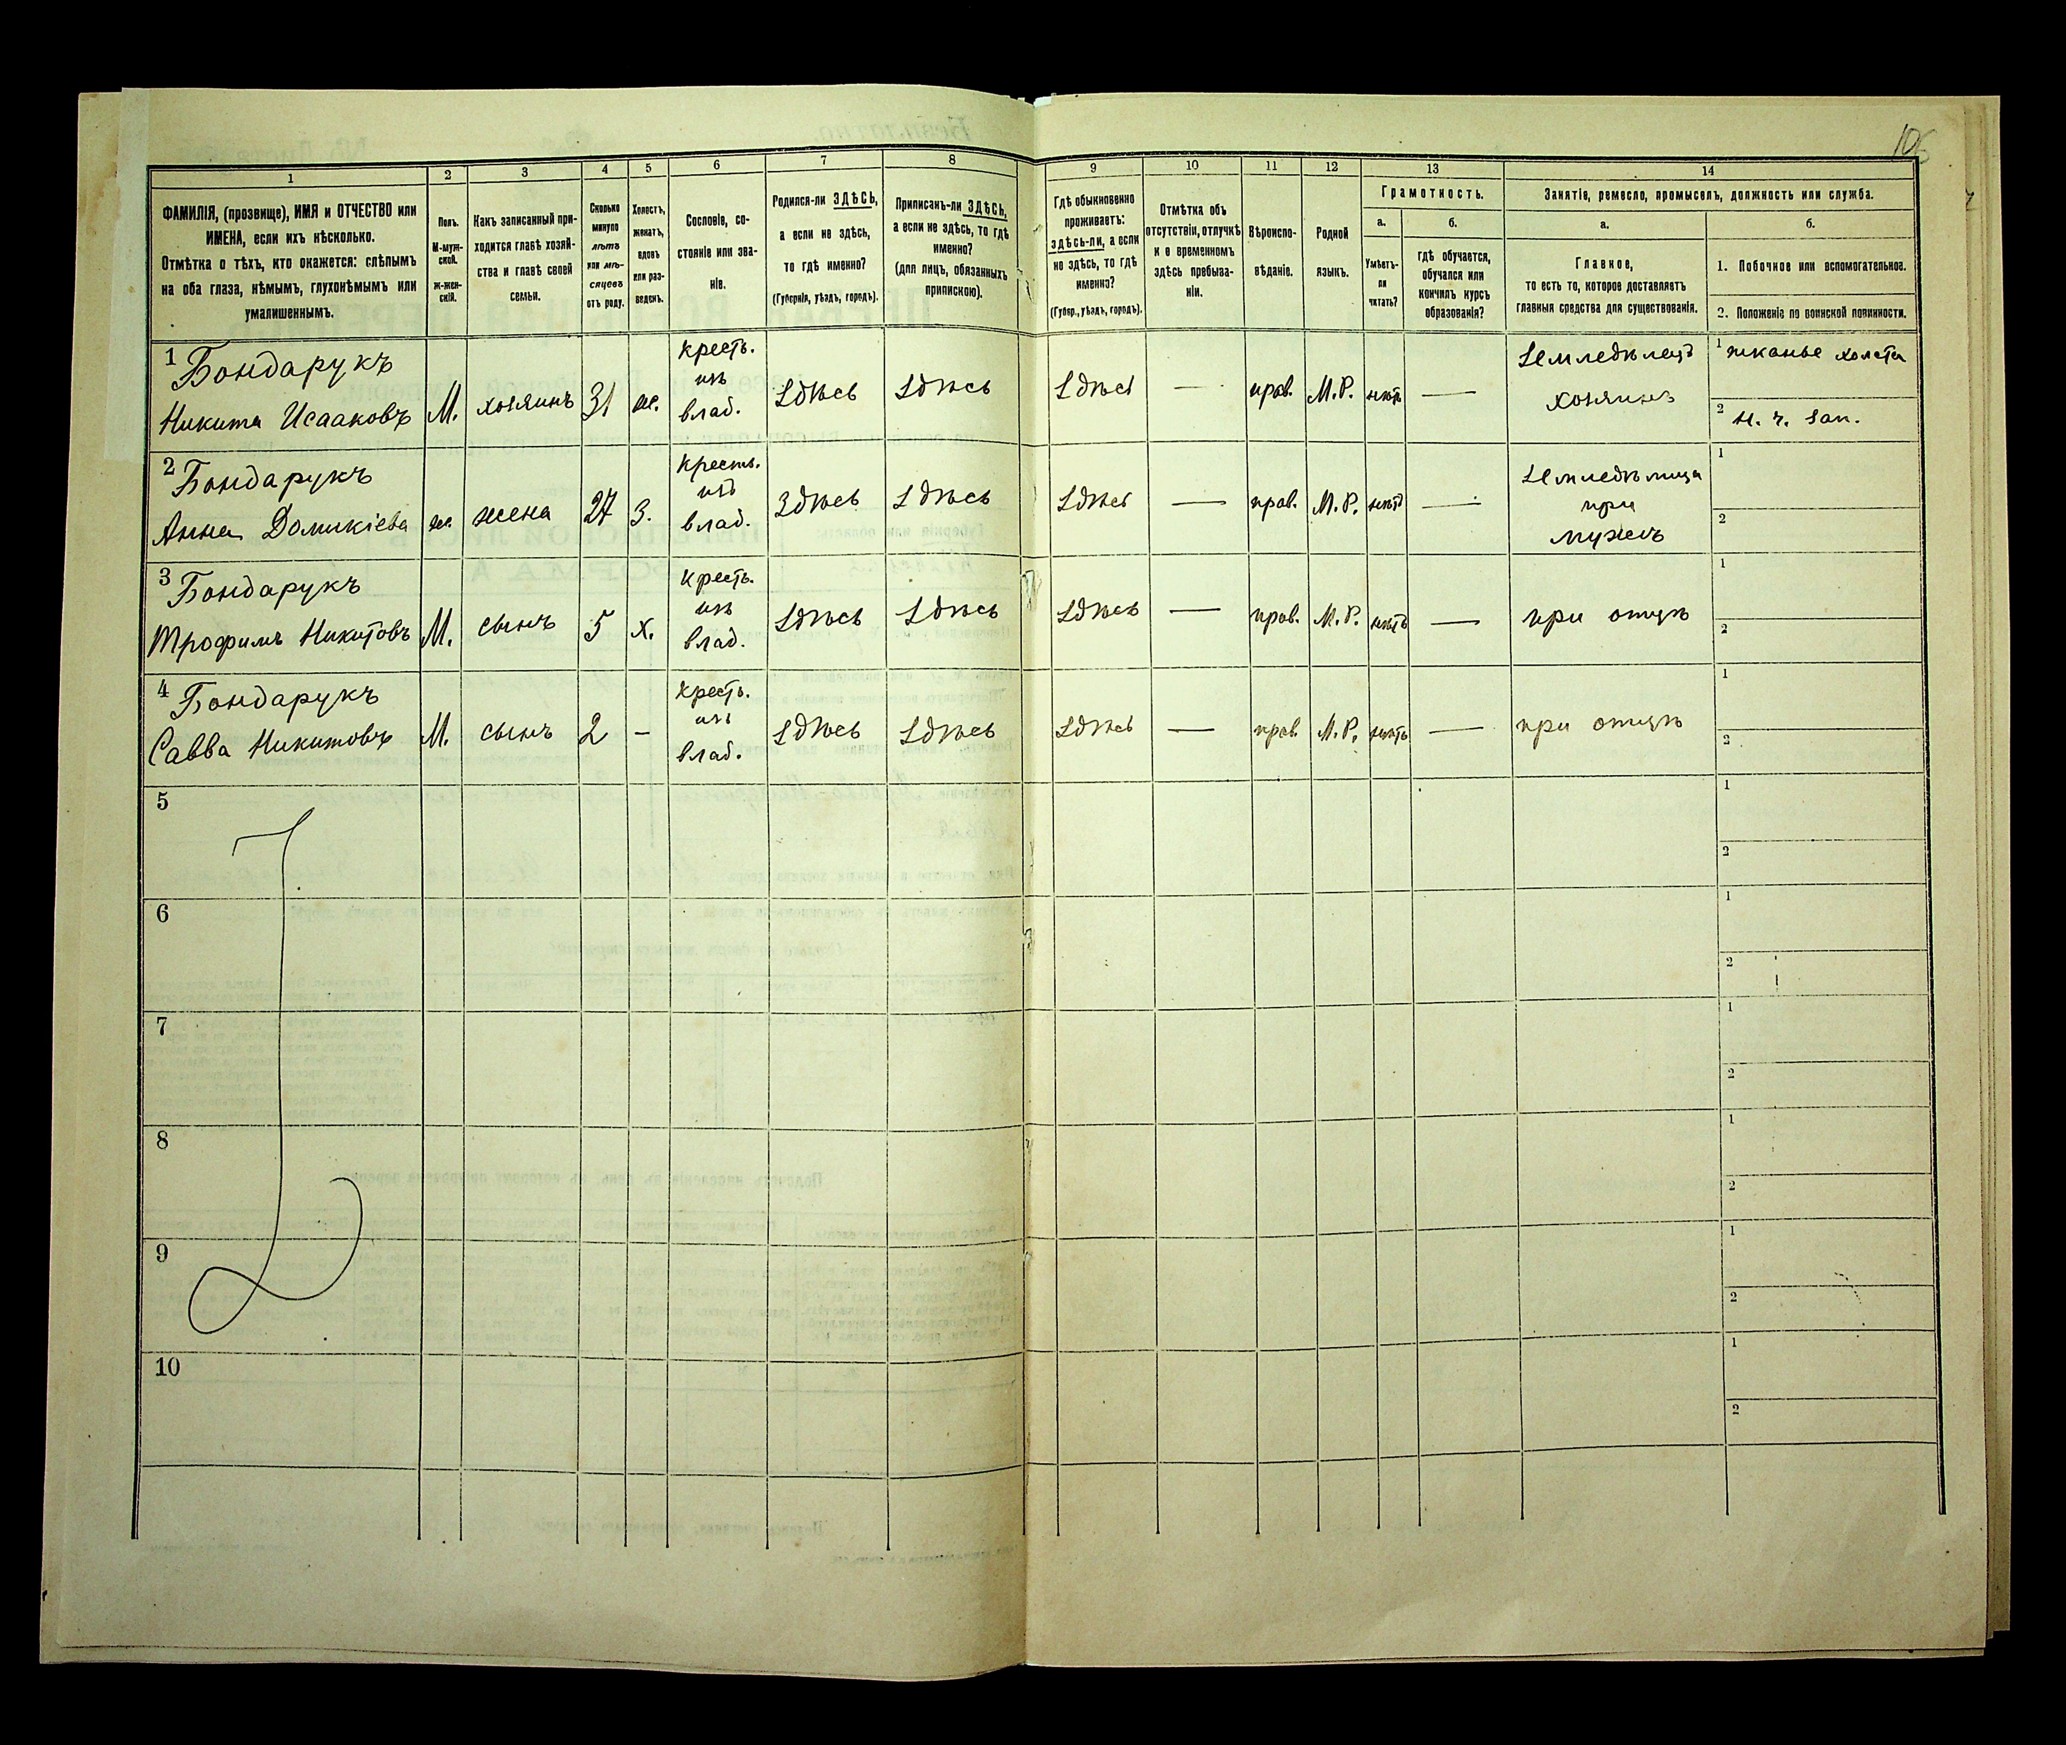 106
1
2
3
4
5
6
7
8
9
10
11
12
13
14
ФАМИЛІЯ, (прозвище), ИМЯ и ОТЧЕСТВО или
ИМЕНА, если ихъ нѣсколько.
Отмѣтка о тѣхъ, кто окажется: слѣпымъ
на оба глаза, нѣмымъ, глухонѣмымъ или
умалишеннымъ.
Полъ.
М-муж-
ской.
Ж-жен-
скій.
Какъ записанный при-
ходится главѣ хозяй-
ства и главѣ своей
семьи.
Сколько
минуло
лѣтъ
или мѣ-
сяцевъ
отъ роду.
Холостъ,
женатъ,
вдовъ
или раз-
веденъ.
Сословіе, со-
стояніе или зва-
ніе.
Родился-ли ЗДѢСЬ,
а если не здѣсь,
то гдѣ именно?
(Губернія, уѣздъ, городъ).
Приписанъ-ли ЗДѢСЬ,
а если не здѣсь, то гдѣ
именно?
(для лицъ, обязанныхъ
припискою).
Гдѣ обыкновенно
проживаетъ:
здѣсь-ли, а если
не здѣсь, то гдѣ
именно?
(Губер., уѣздъ, городъ).
Отмѣтка объ
отсутствіи, отлучкѣ
и о временномъ
здѣсь пребыва-
ніи.
Вѣроиспо-
вѣданіе.
Родной
языкъ.
Грамотность.
а.
Умѣетъ-
ли
читать?
б.
гдѣ обучается,
обучался или
кончилъ курсъ
образованія?
Занятіе, ремесло, промыселъ, должность или служба.
а.
Главное,
то есть то, которое доставляетъ
главныя средства для существованія.
б.
1. Побочное или вспомогательное.
2. Положеніе по воинской повинности.
1 Бондарукъ
Никита Исааковъ
М.
хозяинъ
31
ж.
Кресть.
изъ
влад.
Здѣсь
Здѣсь
Здѣсь
—
прав.
М.Р.
нѣтъ
—
Земледѣлецъ
хозяинъ
1 тканье холста
2 н. ч. зап.
2 Бондарукъ
Анна Домикіева
ж.
жена
27
З.
Кресть.
изъ
влад.
Здѣсь
Здѣсь
Здѣсь
—
прав.
М.Р.
нѣтъ
—
Земледѣлица
при
мужѣ
1
2
3 Бондарукъ
Трофимъ Никитовъ
М.
сынъ
5
х.
Кресть.
изъ
влад.
Здѣсь
Здѣсь
Здѣсь
—
прав.
М.Р.
нѣтъ
—
при отцѣ
1
2
4 Бондарукъ
Савва Никитовъ
М.
сынъ
2
–
Кресть.
изъ
влад.
Здѣсь
Здѣсь
Здѣсь
—
прав.
М.Р.
нѣтъ
—
при отцѣ
1
2
5
1
2
6
1
2
7
1
2
8
1
2
9
1
2
10
1
2